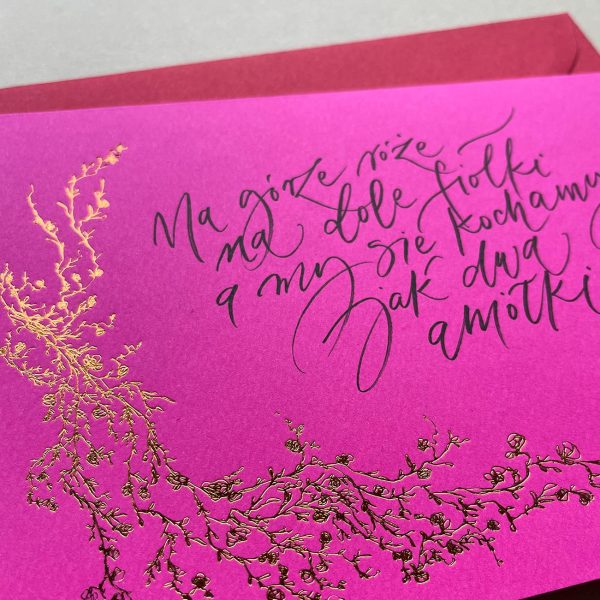 Na górze róże
na dole fiołki
a my się kochamy
jak dwa
amiołki